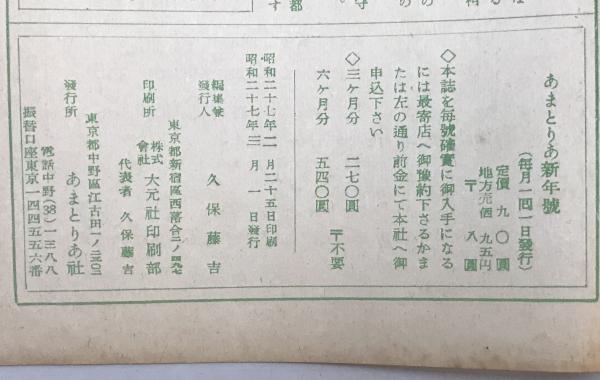 あまとりあ新年號
(每月一囘一日發行)
定價 九〇圓
地方売価 九五円
〒 八圓
◇本誌を每號確實に御入手になる
には最寄店へ御豫約下さるかま
たは左の通り前金にて本社へ御
申込下さい
◇三ヶ月分 二七〇圓
〒不要
六ヶ月分 五四〇圓
昭和二十七年二月二十五日印刷
昭和二十七年三月一日發行
編集兼
發行人 久保藤吉
東京都新宿區西落合二ノ四九七
印刷所 株式會社 大元社印刷部
代表者 久保藤吉
東京都中野區江古田一ノ二三〇三
發行所 あまとりあ社
電話中野(38)一三八八
振替口座東京一四四五五六番